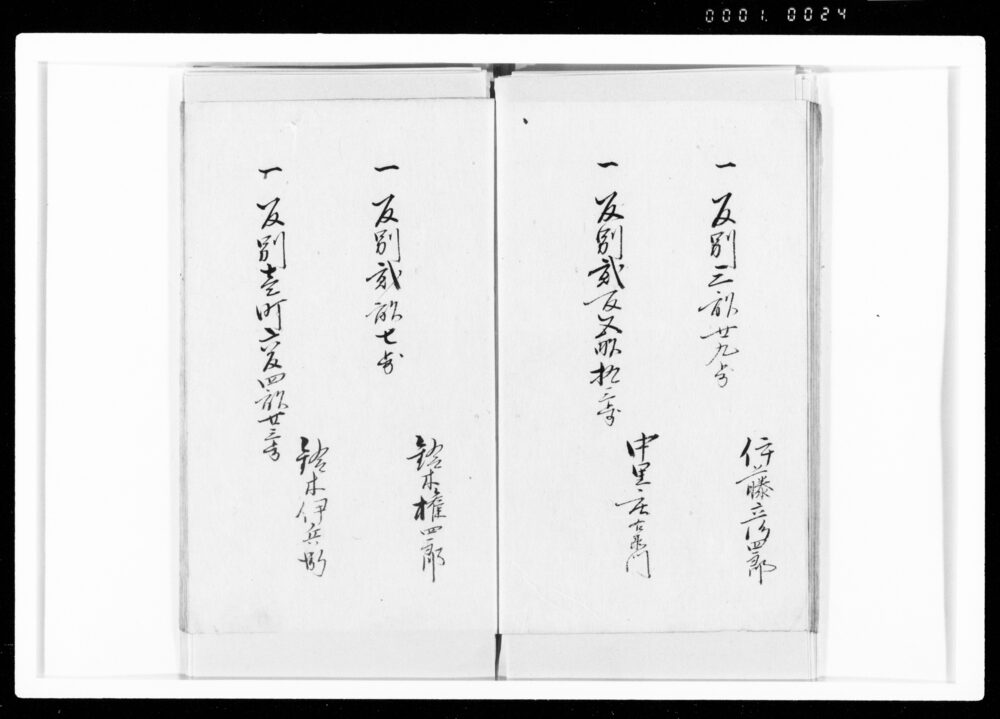 0001. 0024
一 反別三畝廿九歩
伊藤 四郎
一 反別弐反五畝拾三歩
中里庄右衛門
一 反別弐畝七歩
鈴木権四郎
一 反別壱町六反四畝廿三歩
鈴木伊兵衛